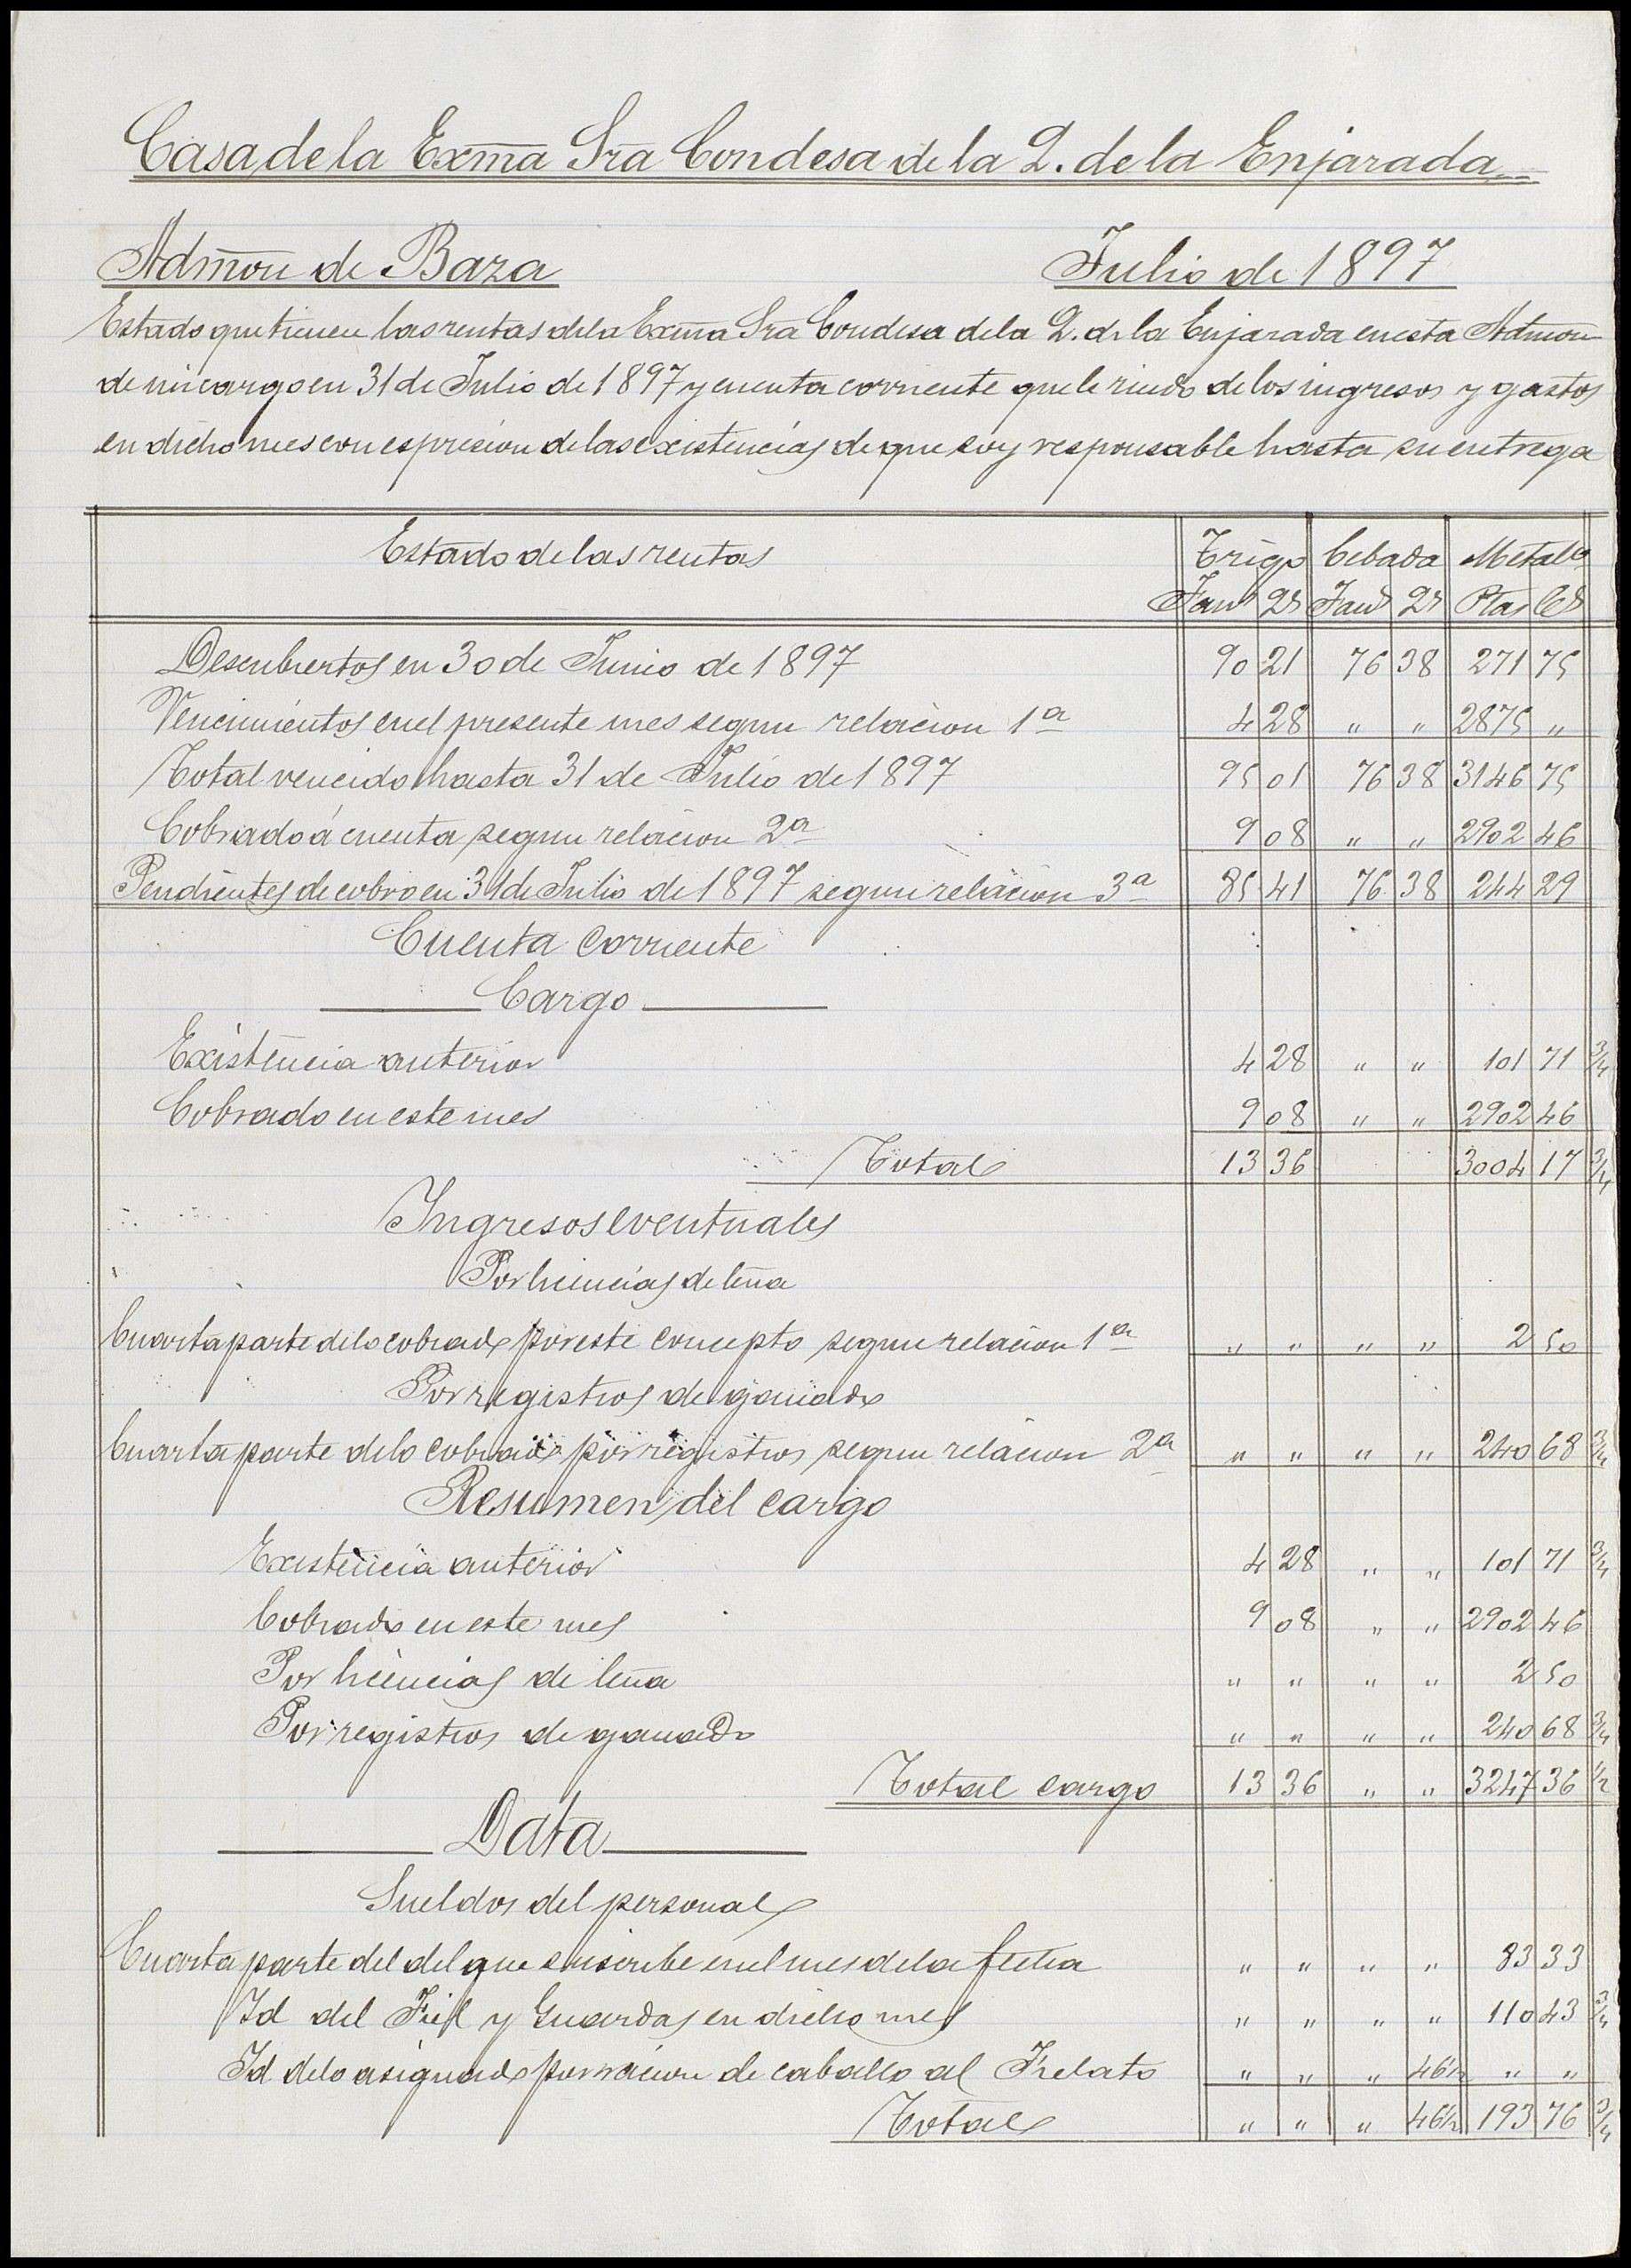 Casa de la Exma Sra Condesa de la Q. de la Enjarada
Admon de Baza Julio de 1897
Estado que tienen las rentas dela Exma Sra Condesa dela Q. de la Enjarada en esta Admon
de mi cargo en 31 de Julio de 1897 y cuenta corriente que le rindo de los ingresos y gastos
en dicho mes con espresion de las existencias de que soy responsable hasta su entrega
Estado de las rentas Trigo Cebada Metalco
Fans Qs Fans Qs Ptas Cs
Descubiertos en 30 de Junio de 1897 90 21 76 38 271 75
Vencimientos en el presente mes segun relacion 1a 4 28 " " 2875 "
Total vencido hasta 31 de Julio de 1897 95 01 76 38 3146 75
Cobrado á cuenta segun relacion 2a 9 08 " " 2902 46
Pendientes de cobro en 31 de Julio de 1897 segun relacion 3a 85 41 76 38 244 29
Cuenta corriente
Cargo
Existencia anterior 4 28 " " 101 71 3/4
Cobrado en este mes 9 08 " " 2902 46
Total 13 36 3004 17 3/4
Ingresos eventuales
Por licencias de leña
Cuarta parte delo cobrado por este concepto segun relacion 1a " " " " 2 50
Por registros de ganado
Cuarta parte delo cobrado por registros segun relacion 2a " " " " 240 68 3/4
Resumen del cargo
Existencia anterior 4 28 " " 101 71 3/4
Cobrado en este mes 9 08 " " 2902 46
Por licencias de leña " " " " 2 50
Por registros de ganado " " " " 240 68 3/4
Total cargo 13 36 " " 3247 36 1/2
Data
Sueldos del personal
Cuarta parte del del que suscribe en el mes dela fecha " " " " 83 33
Id del Fiel y Guardas en dicho mes " " " " 110 43 3/4
Id delo asignado por racion de caballo al Frelato " " " 46 1/2 " "
Total " " " 46 1/2 193 76 3/4